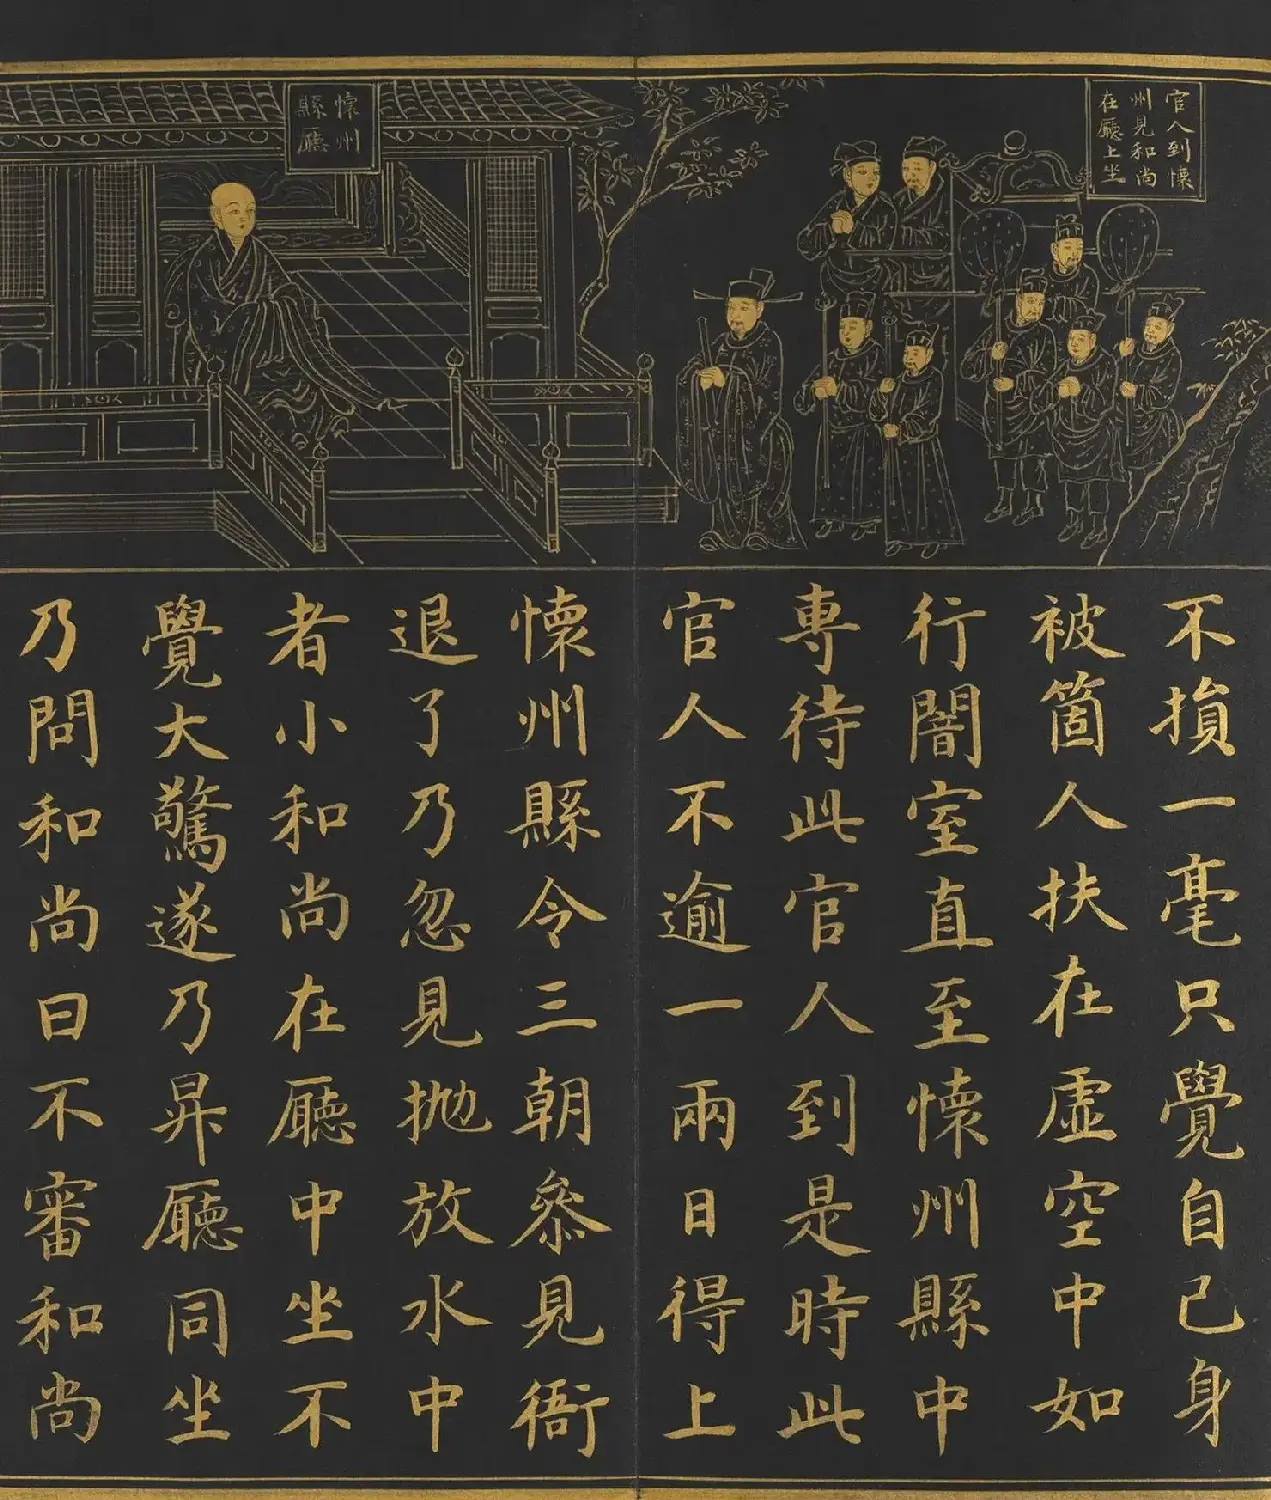 官人到懷
州見和尚
在廳上坐
懷州
縣廳
不損一毫只覺自己身
被箇人扶在虛空中如
行闇室直至懷州縣中
專待此官人到是時此
官人不逾一兩日得上
懷州縣令三朝叅見衙
退了乃忽見抛放水中
者小和尚在廳中坐不
覺大驚遂乃昇廳同坐
乃問和尚曰不審和尚